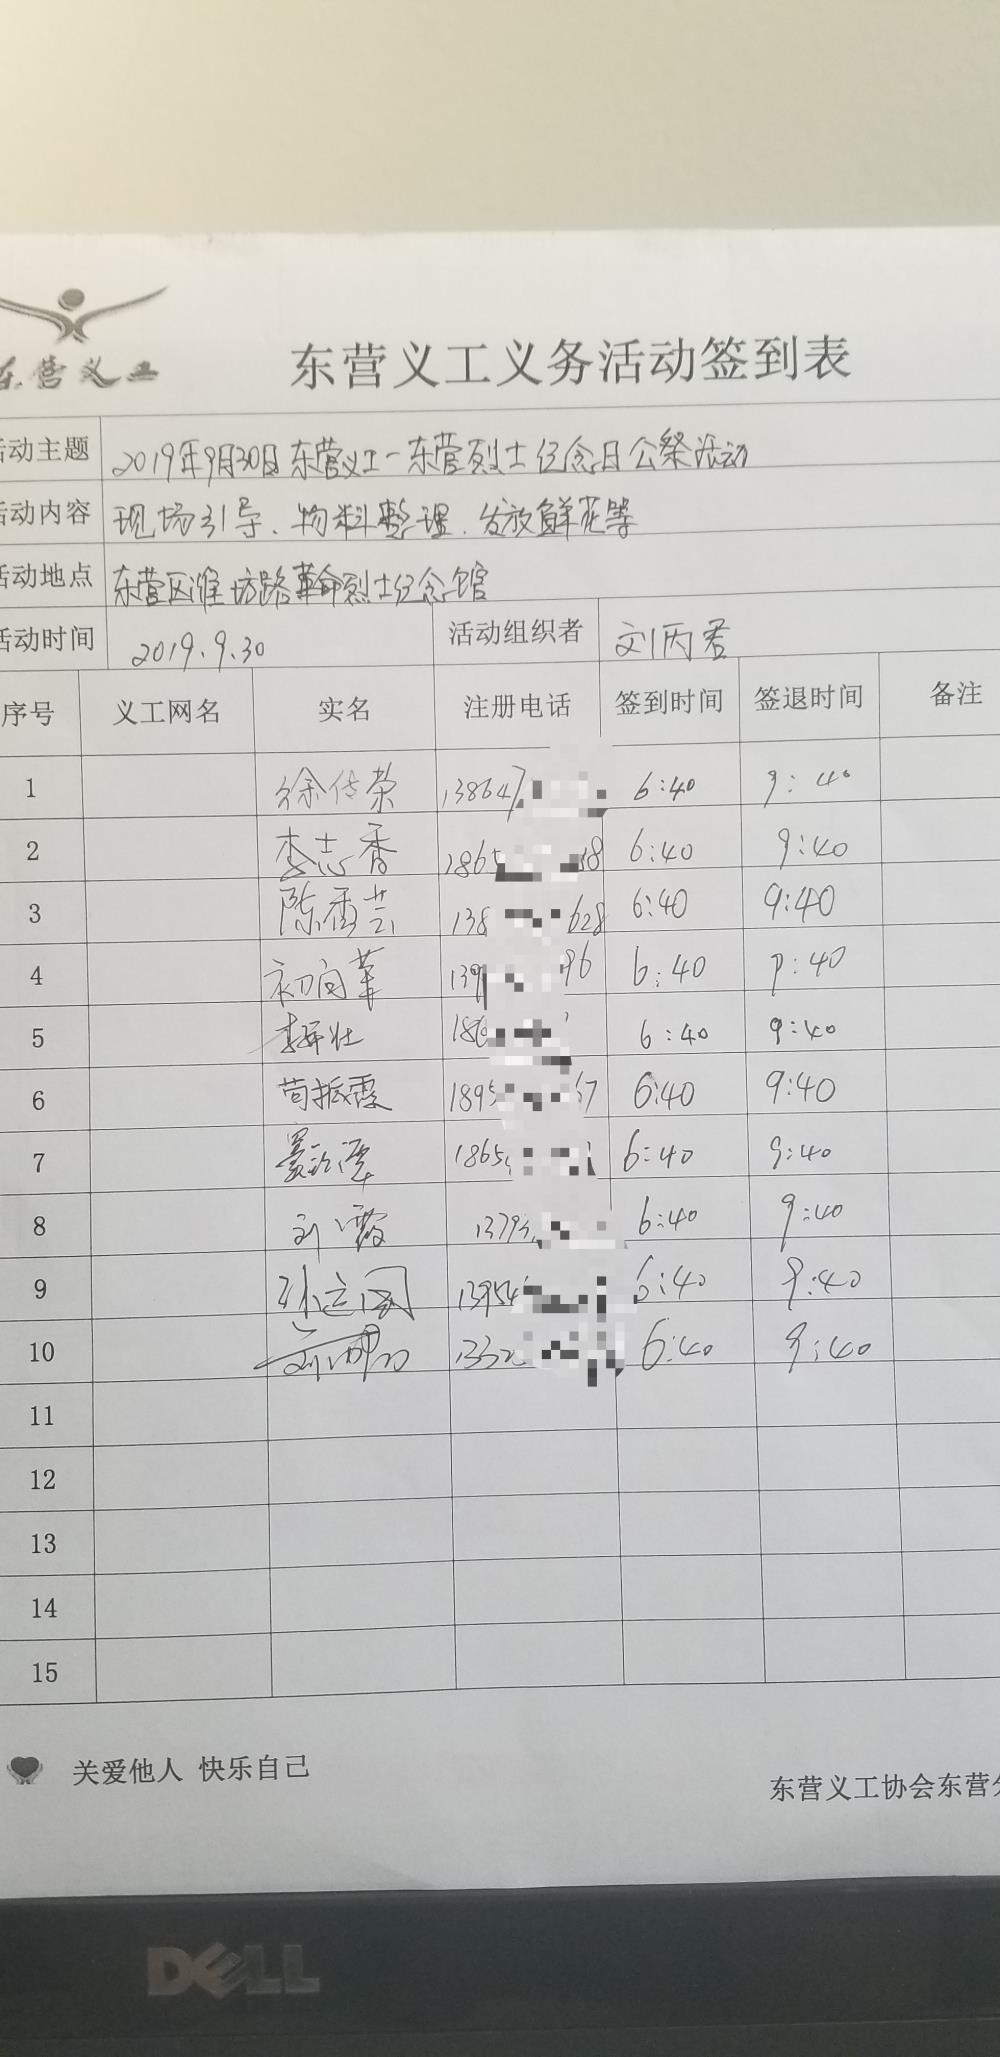 东营义工
东营义工义务活动签到表
活动主题 2019年9月30日东营义工-东营烈士纪念日公祭活动
活动内容 现场引导、物料整理、发放鲜花等
活动地点 东营区潍坊路革命烈士纪念馆
活动时间 2019.9.30 活动组织者 刘丙君
序号 义工网名 实名 注册电话 签到时间 签退时间 备注
1 徐传荣 138647 6:40 9:40
2 李志香 1865 18 6:40 9:40
3 陈香芸 138 628 6:40 9:40
4 初向华 139 96 6:40 9:40
5 186 6:40 9:40
6 苟振霞 1895 67 6:40 9:40
7 1865 6:40 9:40
8 刘霞 13793 6:40 9:40
9 13954 6:40 9:40
10 6:40 9:40
11
12
13
14
15
关爱他人 快乐自己
东营义工协会东营分
DELL